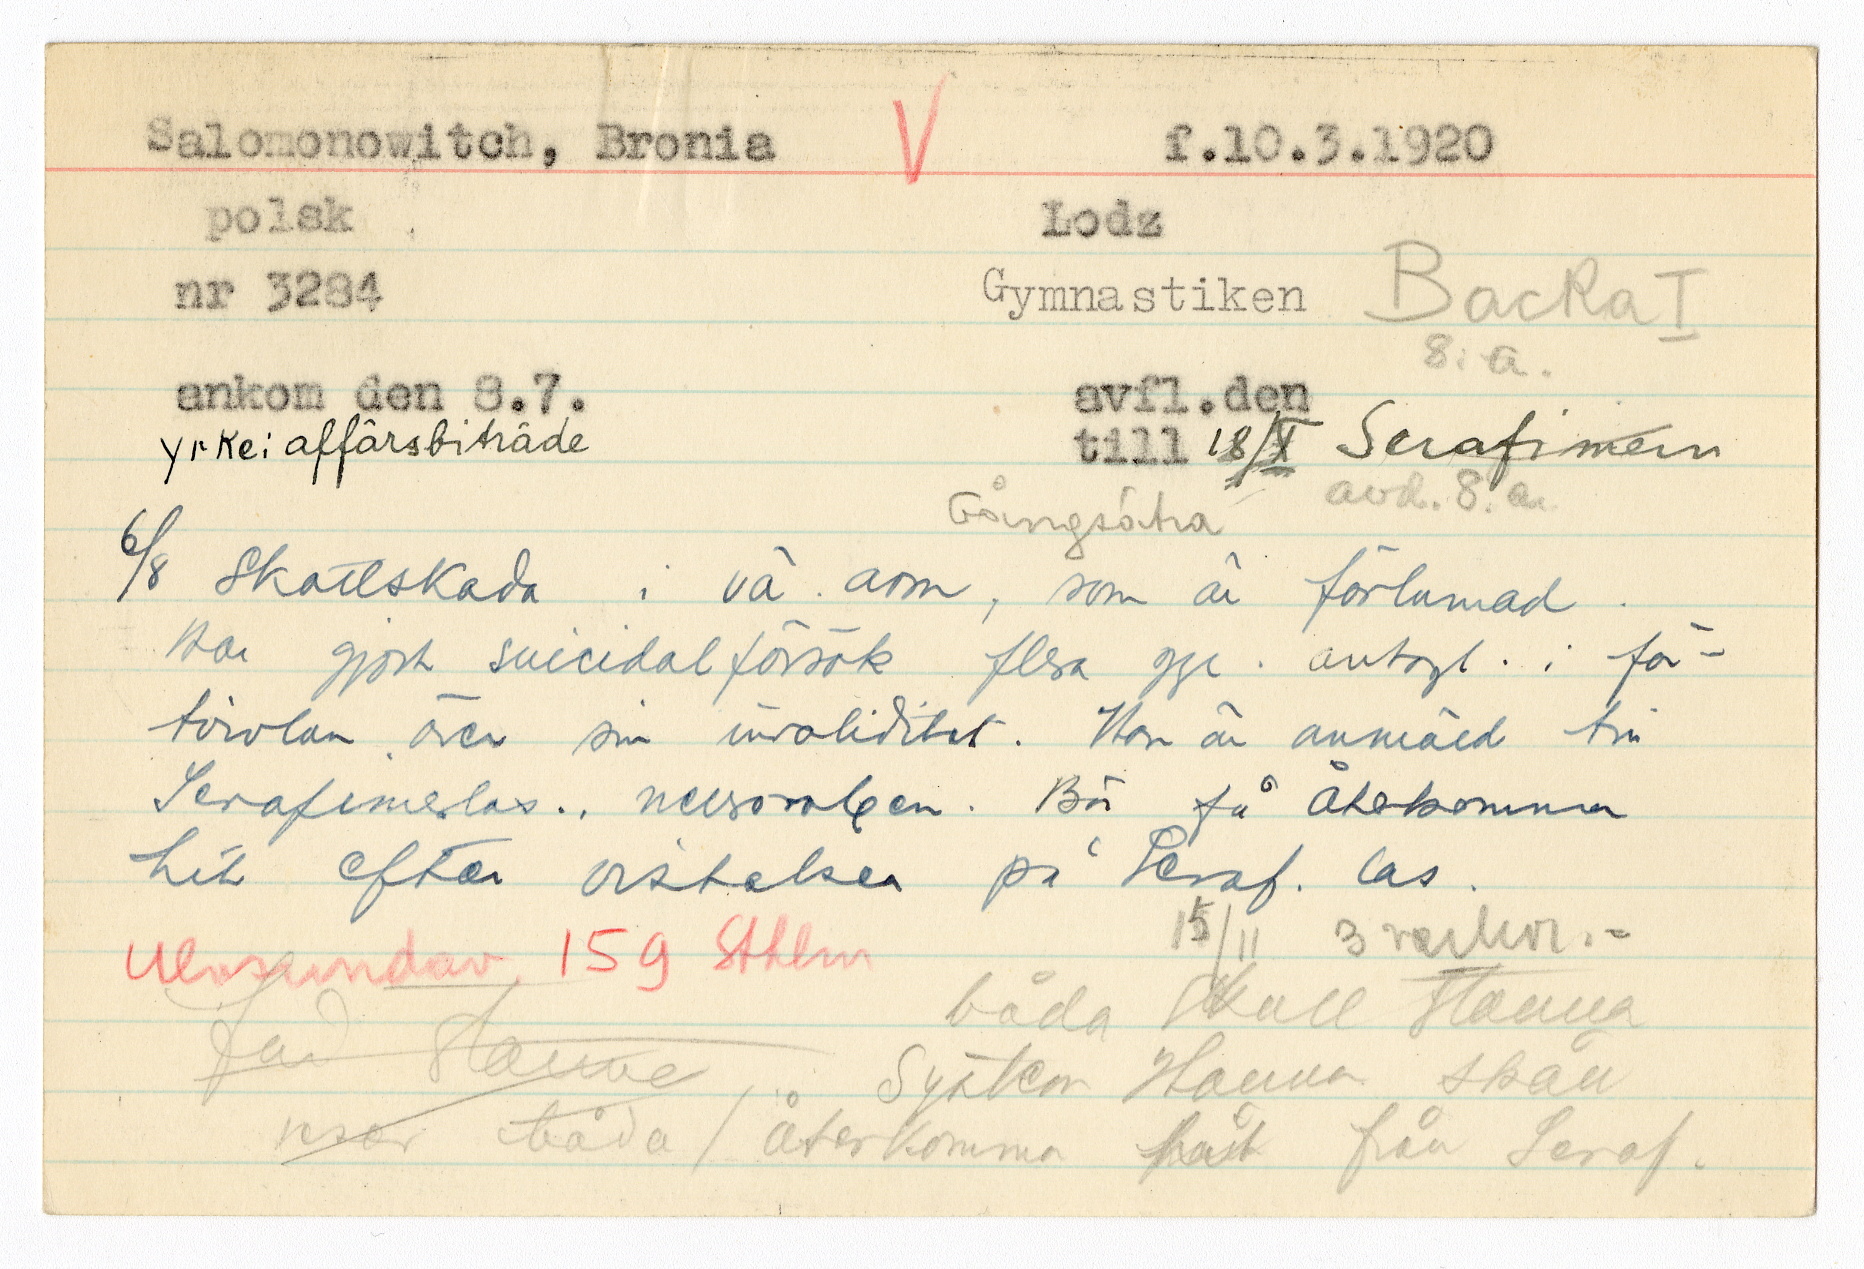 Salomonowitch, Bronia V f.10.3.1920
polsk Lodz
nr 3284 Gymnastiken Backa I
8. a.
ankom den 8.7. avfl.den
yrke: affärsbiträde till 18/X Serafimern
Gångsätra avd. 8. a.
6/8 Skottskada i vä. arm, som är förlamad.
Har gjort suicidalförsök flera ggr. antagl. i för-
tvivlan över sin invaliditet. Hon är anmäld till
Serafimerlas., . Bör få återkomma
hit efter vistelsen på Seraf. las.
Ulvsundav. 159 Sthlm 15/11 3 veckor.-
båda skall stanna
Systern Hanna skall
båda / återkomma från Seraf.